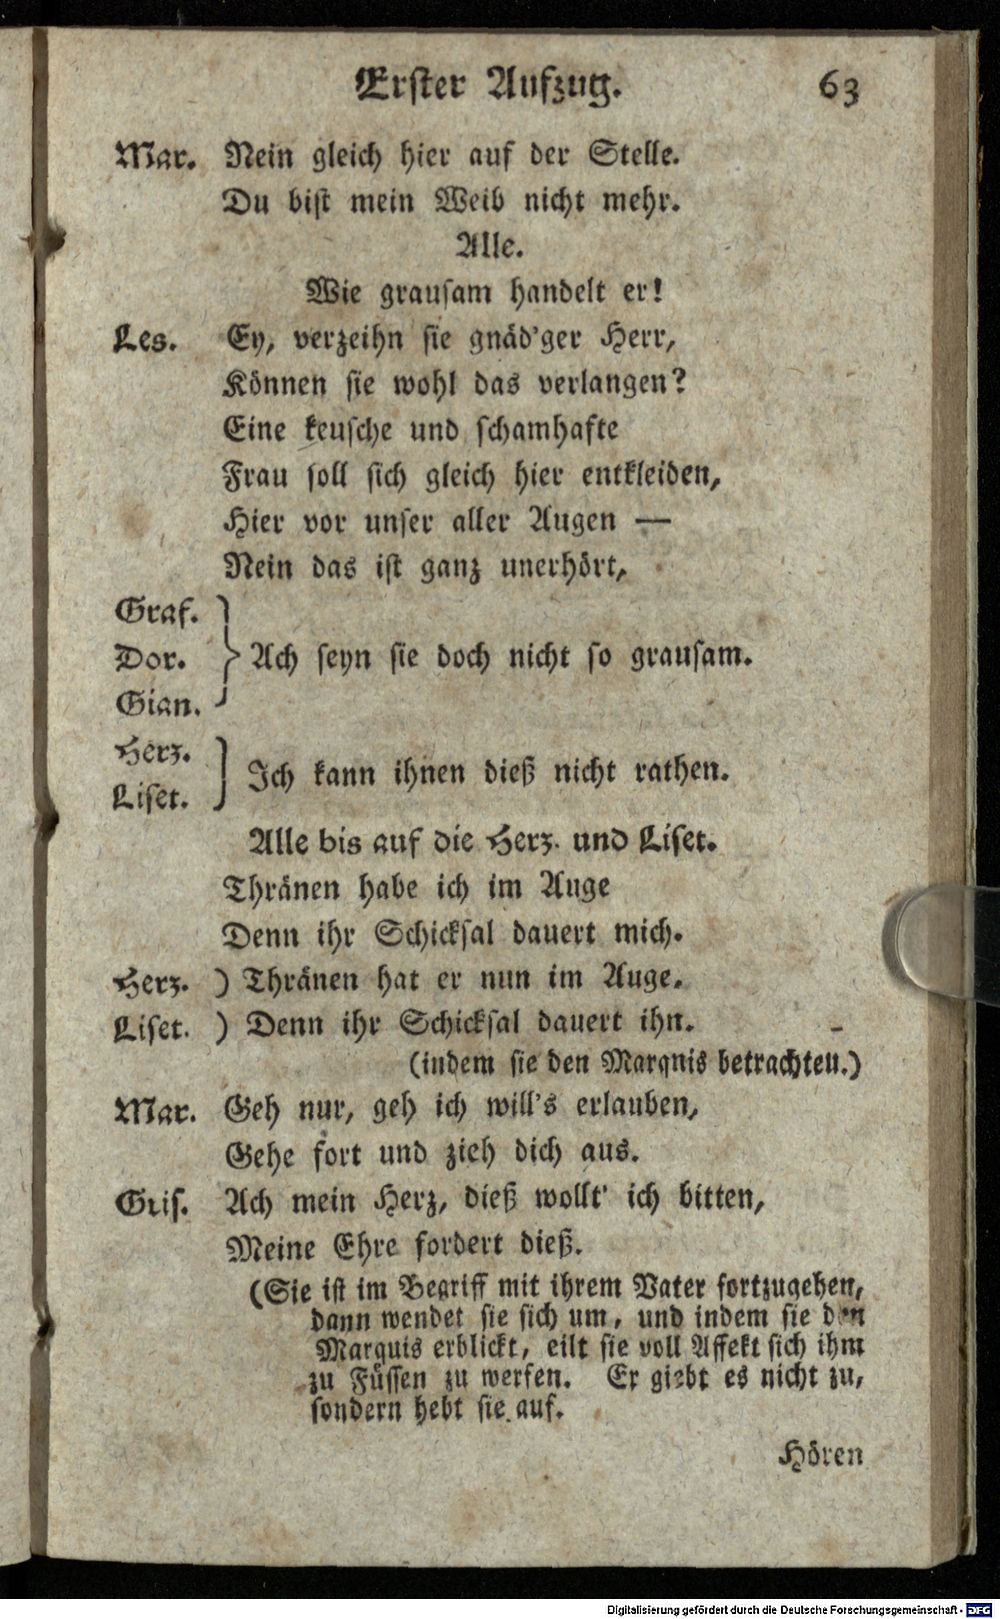 Erster Aufzug. 63
Mar. Nein gleich hier auf der Stelle.
Du bist mein Weib nicht mehr.
Alle.
Wie grausam handelt er!
Les. Ey, verzeihn sie gnäd'ger Herr,
Können sie wohl das verlangen?
Eine keusche und schamhafte
Frau soll sich gleich hier entkleiden,
Hier vor unser aller Augen —
Nein das ist ganz unerhört,
Graf.
Dor. } Ach seyn sie doch nicht so grausam.
Gian.
Herz.
Liset. } Ich kann ihnen dieß nicht rathen.
Alle bis auf die Herz. und Liset.
Thränen habe ich im Auge
Denn ihr Schicksal dauert mich.
Herz. ) Thränen hat er nun im Auge.
Liset. ) Denn ihr Schicksal dauert ihn.
(indem sie den Marquis betrachten.)
Mar. Geh nur, geh ich will's erlauben,
Gehe fort und zieh dich aus.
Gris. Ach mein Herz, dieß wollt' ich bitten,
Meine Ehre fordert dieß.
(Sie ist im Begriff mit ihrem Vater fortzugehen,
dann wendet sie sich um, und indem sie den
Marquis erblickt, eilt sie voll Affekt sich ihm
zu Füssen zu werfen. Er giebt es nicht zu,
sondern hebt sie auf.
Hören
Digitalisierung gefördert durch die Deutsche Forschungsgemeinschaft - DFG